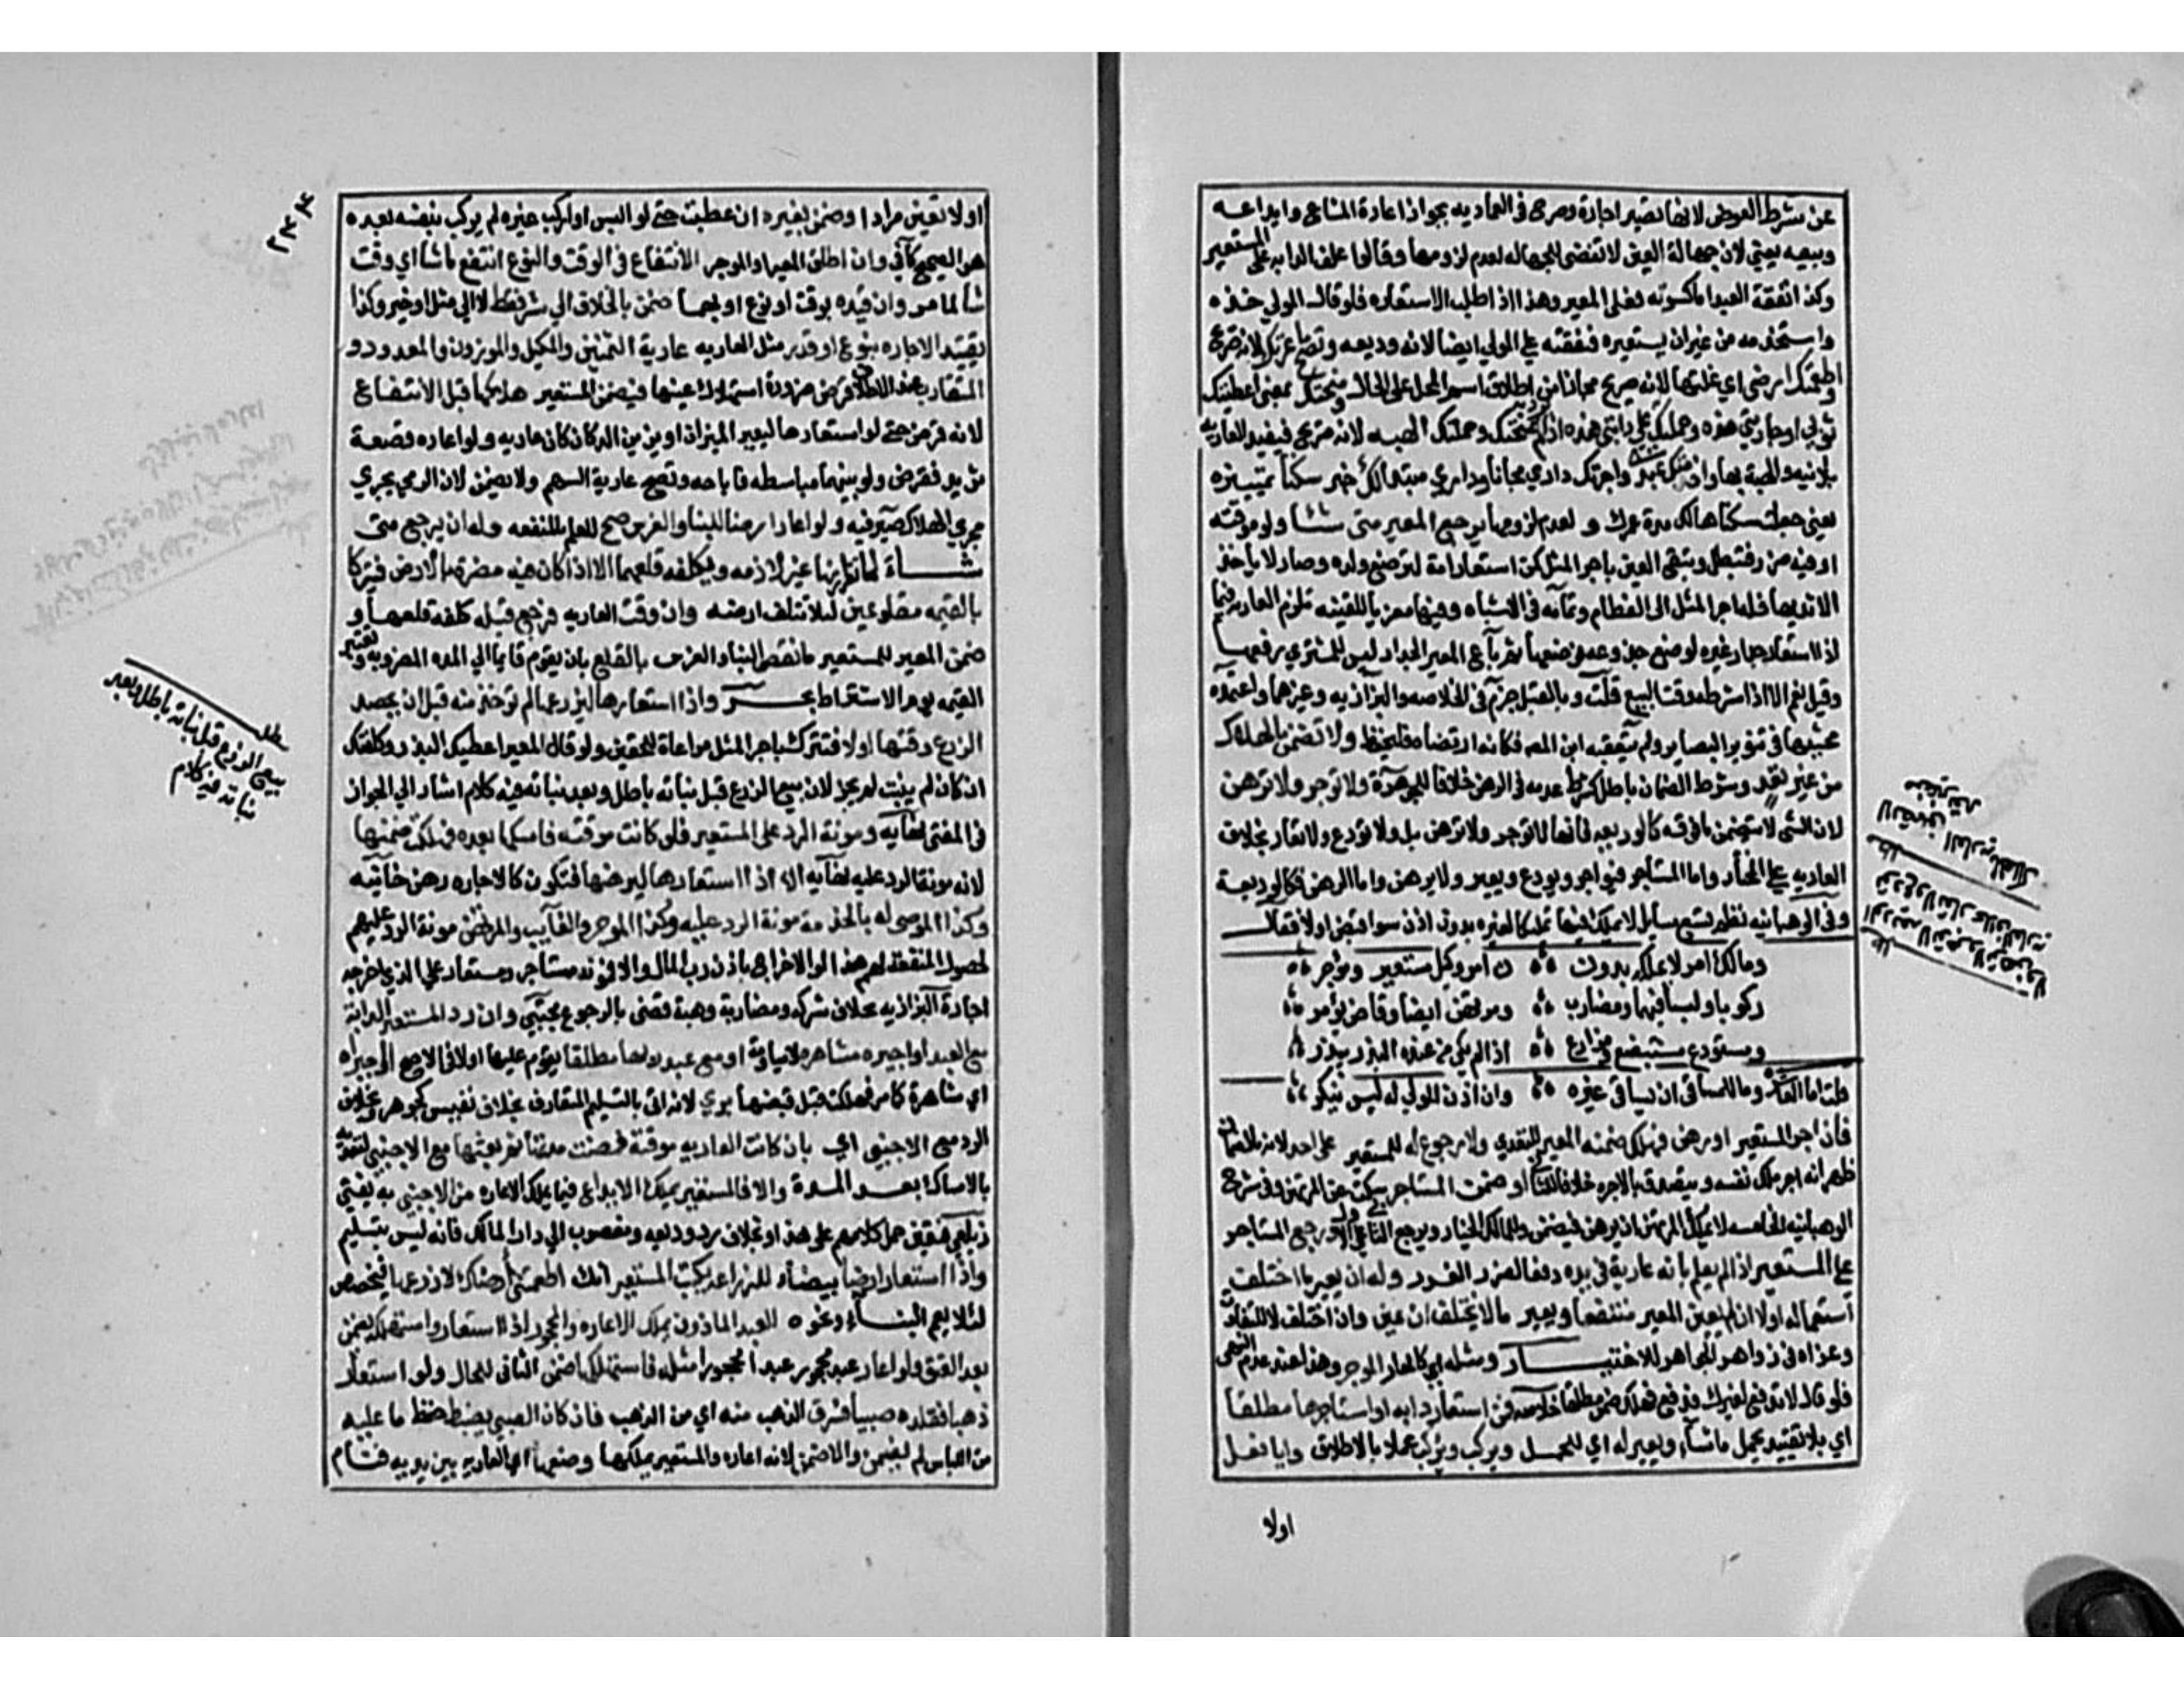 عن شرط العوض لانها تصير اجارة وصرح في العماديه بجواز اعارة المشاع وايداعه
وبيعه يعني لان جهالة العين لا تفضى للجهاله لعدم لزومها وقالوا علف الدابه على المستعير
وكذا نفقة العبد اما كسوته فعلى المعير وهذا اذا طلب الاستعاره فلو قال المولي خذه
واستخدمه من غير ان يستعيره فنفقته علي المولي ايضا لانه وديعه وتصح باعرتك لانه صريح
واطعمتك ارضى اي غلتها لانه صريح مجازا من اطلاق اسم المحل على الحال ومنحتك بمعنى اعطيتك
ثوبي او جاريتي هذه وحملتك على دابتي هذه اذا لم يرد بمنحتك وحملتك الهبه لانه صريح فيفيد العاريه
بلا نيه والهبة بها واخدمتك عبدي واجرتك داري مجانا وداري مبتدا لك خبر سكنا تمييزه
يعني جعلت سكناها لك مدة عمرك و لعدم لزومها يرجع المعير متى شا ولو موقته
او فيه ضرر فتبطل وتبقى العين باجر المثل كمن استعار امة لترضع ولده وصار لا ياخذ
الا ثديها فله اجر المثل الى الفطام وتمامه في الاشباه وفيها معزيا للقنيه تلزم العاريه فيما
اذا استعار جدار غيره لوضع جذوعه فوضعها ثم باع المعير الجدار ليس للمشتري رفعها
وقيل نعم الا اذا شرطه وقت البيع قلت وبالقيل جزم في الخلاصه والبزازيه وغيرها واعتمده
محشيها في تنوير البصاير ولم يتعقبه ابن المص فكانه ارتضاه فليحفظ ولا تضمن بالهلاك
من غير تعد وشرط الضمان باطل كشرط عدمه في الرهن خلافا للجوهرة ولا توجر ولا ترهن
لان الشى لا يتضمن ما فوقه كالوديعه فانها لا توجر ولا ترهن بل ولا تودع ولا تعار بخلاف
العاريه على المختار واما المستاجر فيواجر ويودع ويعير ولا يرهن واما الرهن فكالوديعة
وفي الوهبانيه نظم تسع مسايل لا يملك فيها تمليكا لغيره بدون اذن سوا قبض او لا فقال
ومالك امر لا يملكه بدون ن امر وكيل مستعير وموجر
ركوبا ولبسا فيهما ومضارب ومرتهن ايضا وقاض يؤمر
ومستودع مستبضع ومزارع اذا لم يكن من عنده البذر يبذر
قلت والعاشر وما للمساقى ان يساقى غيره وان اذن المولي له ليس ينكر
فان اجر المستعير او رهن فهلك ضمنه المعير للتعدي ولا رجوع له للمستعير على احد لانه بالضمان
ظهر انه اجر ملك نفسه ويتصدق بالاجره خلافا للثاني او ضمن المستاجر سكت عن المرتهن وفي شرح
الوهبانيه الخامسه لا يملك المرتهن ان يرهن فيضمن وللمالك الخيار ويرجع الثاني على الاول ورجع المستاجر
على المستعير اذا لم يعلم بانه عارية في يده دفعا لضرر الغرور وله ان يعير ما اختلف
استعماله اولا ان لم يعين المعير منتفعا ويعير ما لا يختلف ان عين وان اختلف لا للتفاوت
وعزاه في زواهر الجواهر للاختيار ومثله اي كالمعار الموجر وهذا عند عدم النهى
فلو قال لا تدفع لغيرك فدفع فهلك ضمن مطلقا خلاصه فمن استعار دابه او استاجرها مطلقا
اي بلا تقييد يحمل ما شا ويعير له اي للحمل ويركب ويركب عملا بالاطلاق وايا فعل
اولا
لا تضمن العاريه بالهلاك من غير تعد
مطلب
الوديعه لا توجر ولا ترهن ولا تودع ولا تعار بخلاف العاريه
مطلب
٢٣٤
اولا تعين مرادا وضمن بغيره ان عطبت حتى لو البس او اركب غيره لم يركب بنفسه بعده
هو الصحيح كافي وان اطلق المعير او الموجر الانتفاع في الوقت والنوع انتفع ما شا اي وقت
شا لما مر وان قيده بوقت او نوع او بهما ضمن بالخلاف الي شر فقط لا الي مثل او خير وكذا
تقييد الاجاره بنوع او قدر مثل العاريه عارية الثمنين والمكيل والموزون والمعدود و
المتقارب عند الاطلاق قرض ضرورة استهلاك عينها فيضمن المستعير هلاكها قبل الانتفاع
لانه قرض حتى لو استعارها ليعير الميزان او يزين الدكان كان عاريه ولو اعاره قصعة
ثريد فقرض ولو بينهما مباسطه فاباحه وتصح عارية السهم ولا يضمن لان الرمي يجري
مجري الهلاك صيرفيه ولو اعار ارضا للبنا والغرس صح للعلم بالمنفعه وله ان يرجع متى
شاء لما تقرر انها غير لازمه ويكلفه قلعهما الا اذا كان فيه مضرة بالارض فيتركا
بالقيمه مقلوعين لئلا تتلف ارضه وان وقت العاريه فرجع قبله كلفه قلعهما و
ضمن المعير للمستعير ما نقص البناء والغرس بالقلع بان يقوم قايما الي المده المضروبه وتعتبر
القيمه يوم الاسترداد بحر واذا استعارها ليزرعها لم توخذ منه قبل ان يحصد
الزرع وقتها اولا فتترك باجر المثل مراعاة للحقين ولو قال المعير اعطيك البذر وكلفتك
ان كان لم ينبت لم يجز لان بيع الزرع قبل نباته باطل وبعد نباته فيه كلام اشار الي الجواز
في المغنى نهايه ومونة الرد على المستعير فلو كانت موقته فامسكها بعده فهلكت ضمنها
لانه مونة الرد عليه نهايه الا اذا استعارها ليرهنها فتكون كالاجاره رهن خانيه
وكذا الموصى له بالخدمة مونة الرد عليه وكذا الموجر والغاصب والمرتهن مونة الرد عليهم
لحصول المنفعة لهم هذا لو الاخراج باذن رب المال والا فمونة رد مستاجر ومستعار علي الذي اخرجه
اجارة البزازيه بخلاف شركه ومضاربة وهبة قضى بالرجوع مجتبى وان رد المستعير الدابة
مع العبد او اجيره مشاهره لا مياومة او مع عبد ربها مطلقا يقوم عليها اولا في الاصح او اجيره
اي مشاهرة كما مر فهلكت قبل قبضها بري لانه اتى بالتسليم المتعارف بخلاف نفيس كجوهر وبخلاف
الرد مع الاجنبى اي بان كانت العاريه موقتة فمضت مدتها ثم بعثها مع الاجنبى لتعديه
بالامساك بعد المدة والا فالمستعير يملك الايداع فيما يملك الاعاره من الاجنبى به يفتى
زيلعي فتعين حمل كلامهم على هذا وبخلاف رد وديعه ومغصوب الي دار المالك فانه ليس بتسليم
واذا استعار ارضا بيضاء للزراعه يكتب المستعير انك اطعمتنى ارضك لازرعها فيخصص
لئلا يعم البناء ونحوه العبد الماذون يملك الاعاره والمحجور اذا استعار واستهلكه يضمن
بعد العتق ولو اعار عبد محجور عبدا محجورا مثله فاستهلكها ضمن الثاني للحال ولو استعار
ذهبا فقلده صبيا فسرق الذهب منه اي من الذهب فان كان الصبي يضبط حفظ ما عليه
من اللباس لم يضمن والا ضمن لانه اعاره والمستعير يملكها وضعها اي العاريه بين يديه فنام
مطلب
بيع الزرع قبل نباته باطل وبعد
نباته فيه كلام